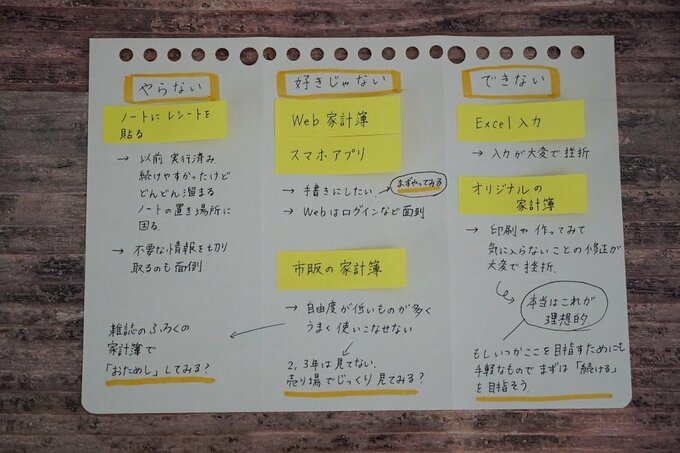 やらない
ノートにレシートを
貼る
→ 以前 実行済み
続けやすかったけど
どんどん溜まる
ノートの置き場所に
困る
→ 不要な情報を切り
取るのも面倒
雑誌のふろくの
家計簿で
「おためし」してみる?
好きじゃない
Web 家計簿
スマホアプリ
→ 手書きにしたい
まずやってみる
→ Webはログインなど面倒
市販の家計簿
→ 自由度が低いものが多く
うまく使いこなせない
2,3年は見てない
売り場でじっくり見てみる?
できない
Excel入力
→ 入力が大変で挫折
オリジナルの
家計簿
→ 印刷や作ってみて
気に入らないことの修正が
大変で挫折.
本当はこれが
理想的
もしいつかここを目指すためにも
手軽なものでまずは「続ける」
を目指そう.